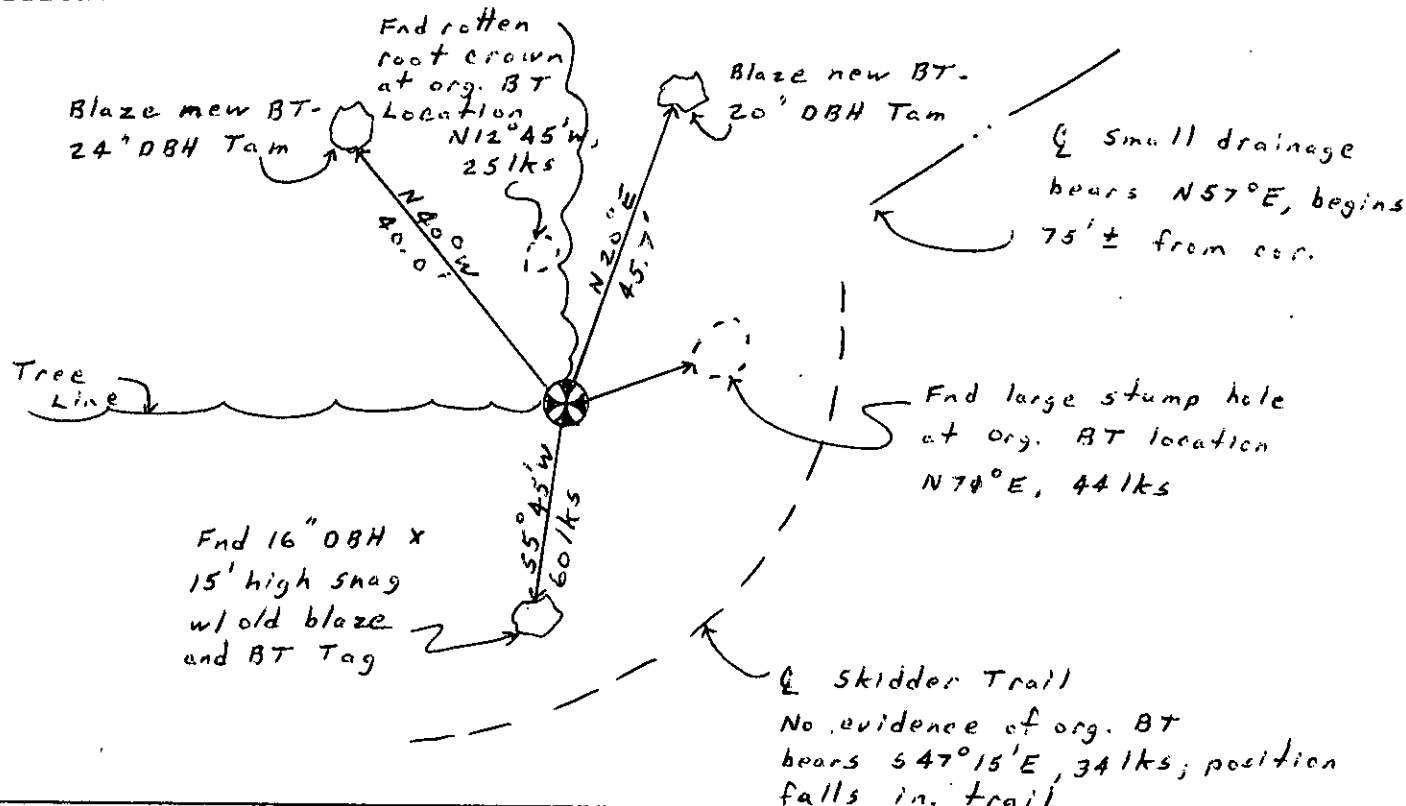 Fnd rotten
root crown
at org. BT
Location
N12°45'W,
25lks
Blaze mew BT-
24"DBH Tam
Blaze new BT-
20" DBH Tam
℄ Small drainage
bears N57°E, begins
75'± from cor.
N40°W
40.0'
N20°E
45.7'
Tree
Line
Fnd large stump hole
at org. BT location
N74°E, 44lks
S5°45'W
60lks
Fnd 16"DBH x
15' high snag
w/ old blaze
and BT Tag
℄ Skidder Trail
No evidence of org. BT
bears S47°15'E, 34lks; position
falls in trail